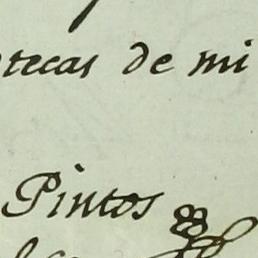 tecas de mi
Pintos